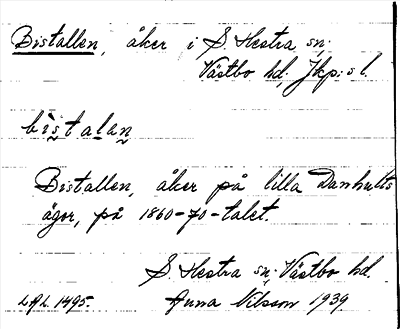 Bistallen, åker i S. Hestra sn.
Västbo hd, Jkp:s l.
bistalan
Bistallen, åker på lilla Danhults
ägor, på 1860-70-talet.
S. Hestra sn. Västbo hd.
LAL 1495. Anna Nilsson 1939